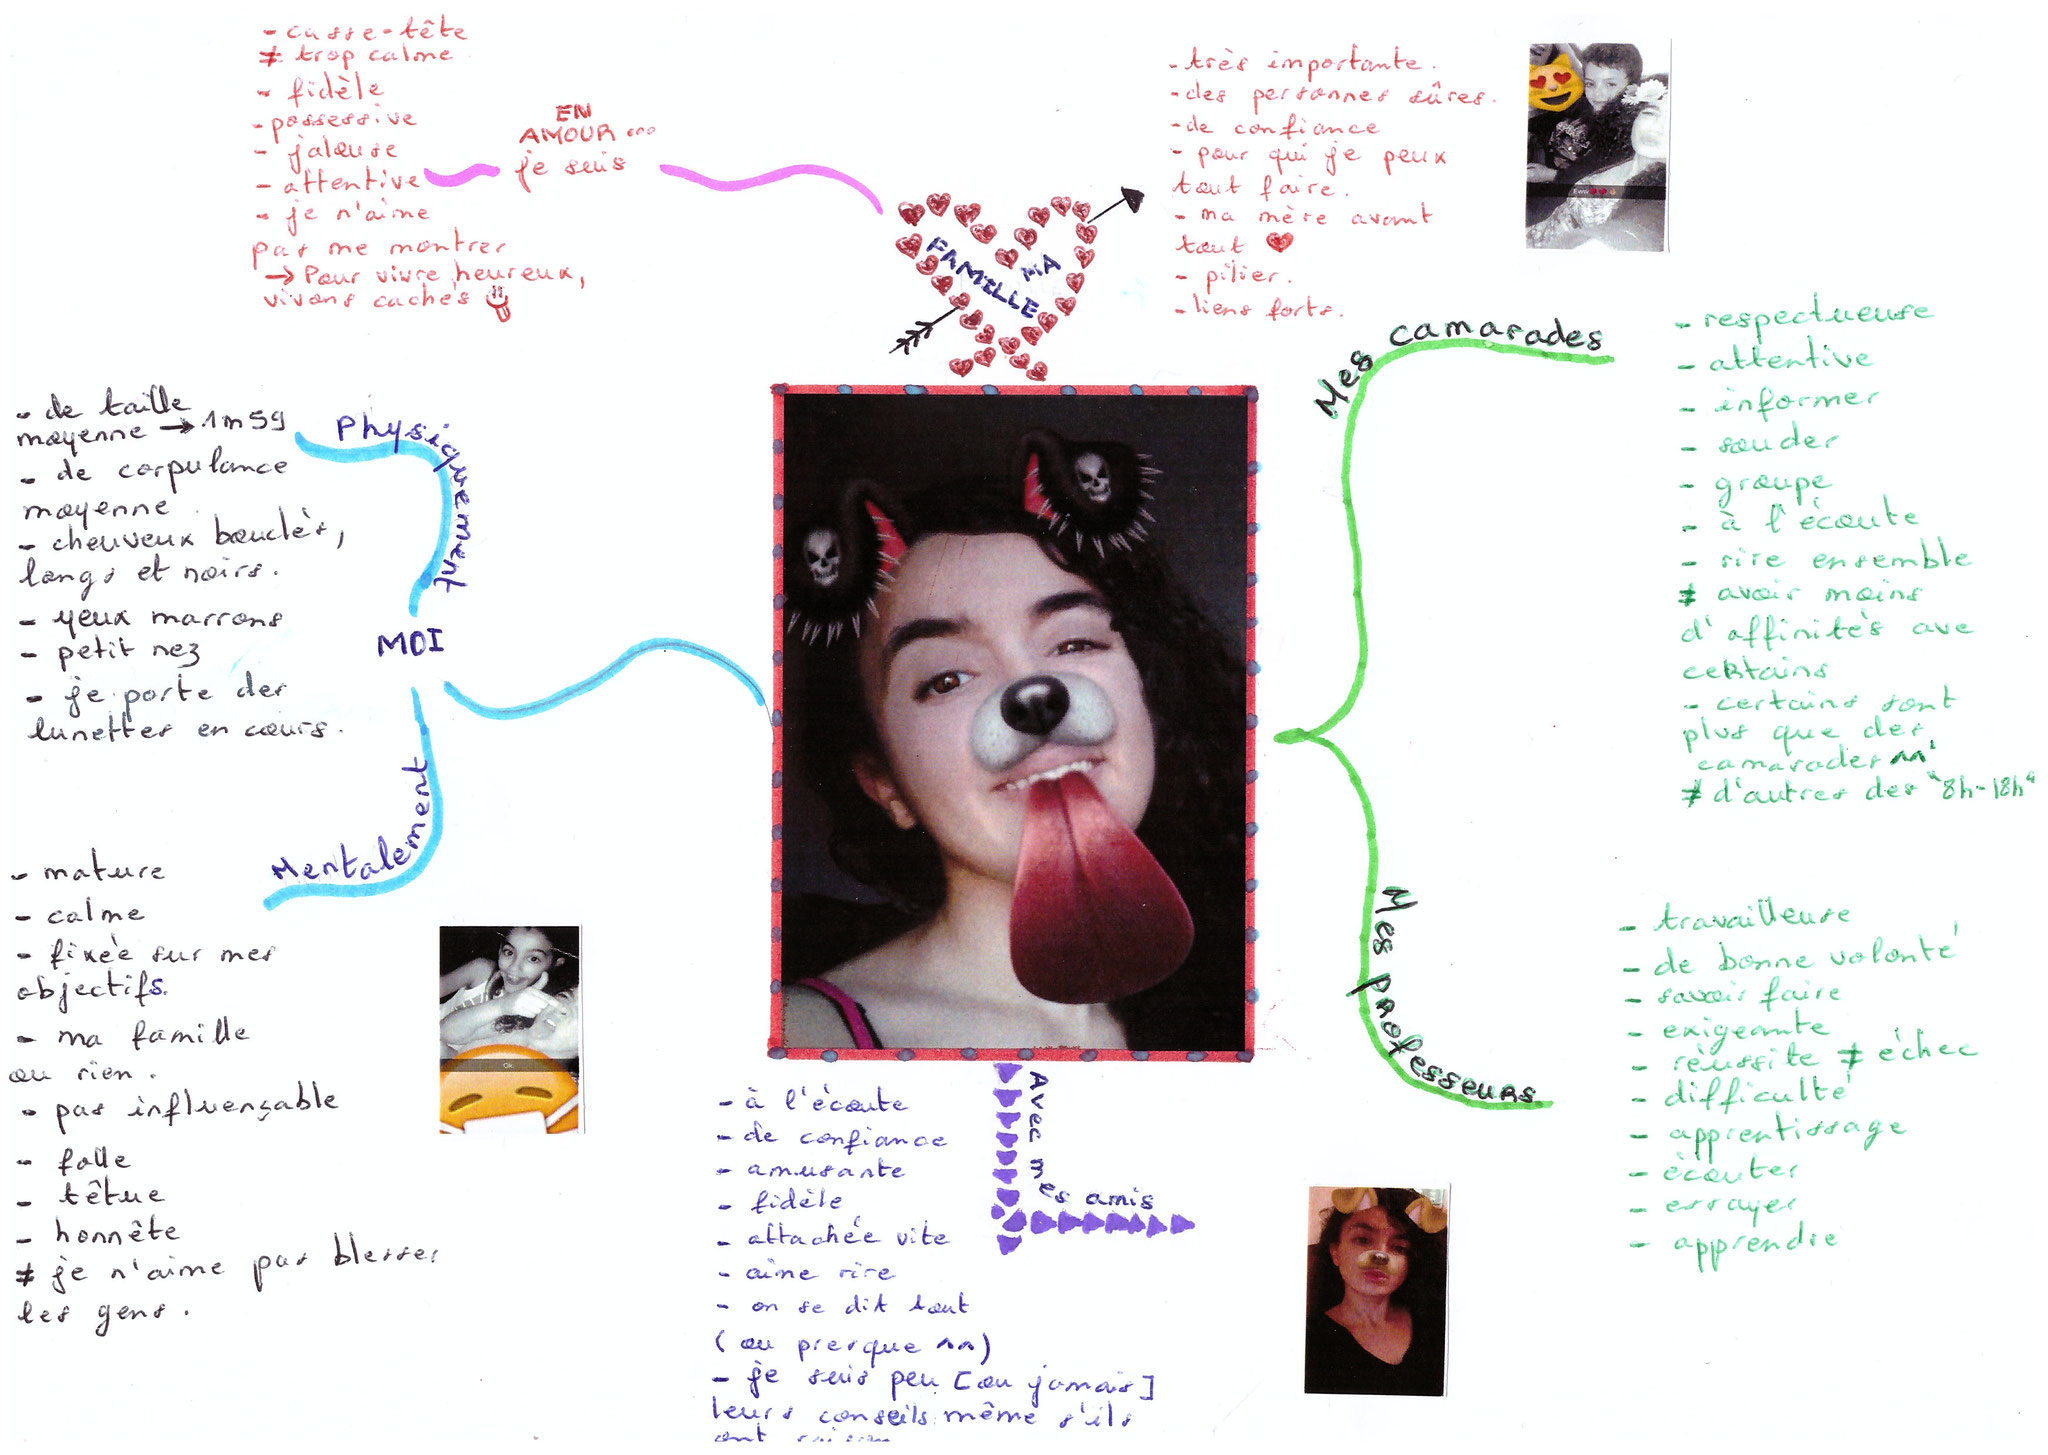 - casse-tête
≠ trop calme
- fidèle
- possessive
- jalouse
- attentive
- je n'aime
pas me montrer
→ Pour vivre heureux,
vivons cachés
EN
AMOUR ...
je suis
MA
FAMILLE
- très importante.
- des personnes sûres.
- de confiance
- pour qui je peux
tout faire.
- ma mère avant
tout ♥
- pilier.
- liens forts.
Mes camarades
- respectueuse
- attentive
- informer
- souder
- groupe
- à l'écoute
- rire ensemble
≠ avoir moins
d'affinités ave
certains
- certains sont
plus que des
camarades ^^'
≠ d'autres des "8h-18h"
Physiquement
- de taille
moyenne → 1m59
- de corpulance
moyenne.
- cheuveux bouclés,
longs et noirs.
- yeux marrons
- petit nez
- je porte des
lunettes en cours.
MOI
Mentalement
- mature
- calme
- fixée sur mes
objectifs.
- ma famille
ou rien.
- pas influençable
- folle
- têtue
- honnête
≠ je n'aime pas blesser
les gens.
Ok
Avec mes amis
- à l'écoute
- de confiance
- amusante
- fidèle
- attachée vite
- aime rire
- on se dit tout
(ou presque ^^)
- je suis peu [ou jamais]
leurs conseils même s'ils
ont raison
Mes professeurs
- travailleuse
- de bonne volonté
- savoir faire
- exigeante
- réussite ≠ échec
- difficulté
- apprentissage
- écouter
- essayer
- apprendre